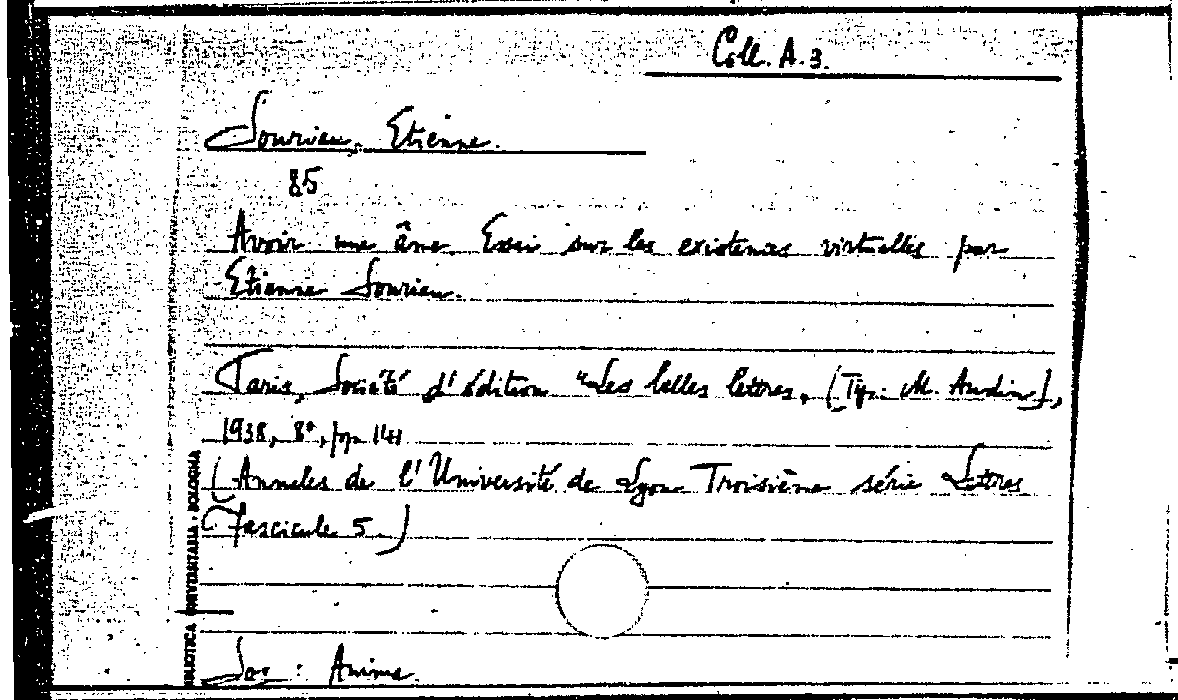 Coll. A. 3.
Souriau, Etienne.
85
Avoir une âme. Essai sur les existences virtuelles par
Etienne Souriau.
Paris, Société d'édition "Les belles lettres, [Typ. M. Audin],
1938, 8°, pp. 141
(Annales de l'Université de Lyon Troisième série Lettres
(Fascicule 5.)
Sog : Anima.
BIBLIOTECA UNIVERSITARIA - BOLOGNA